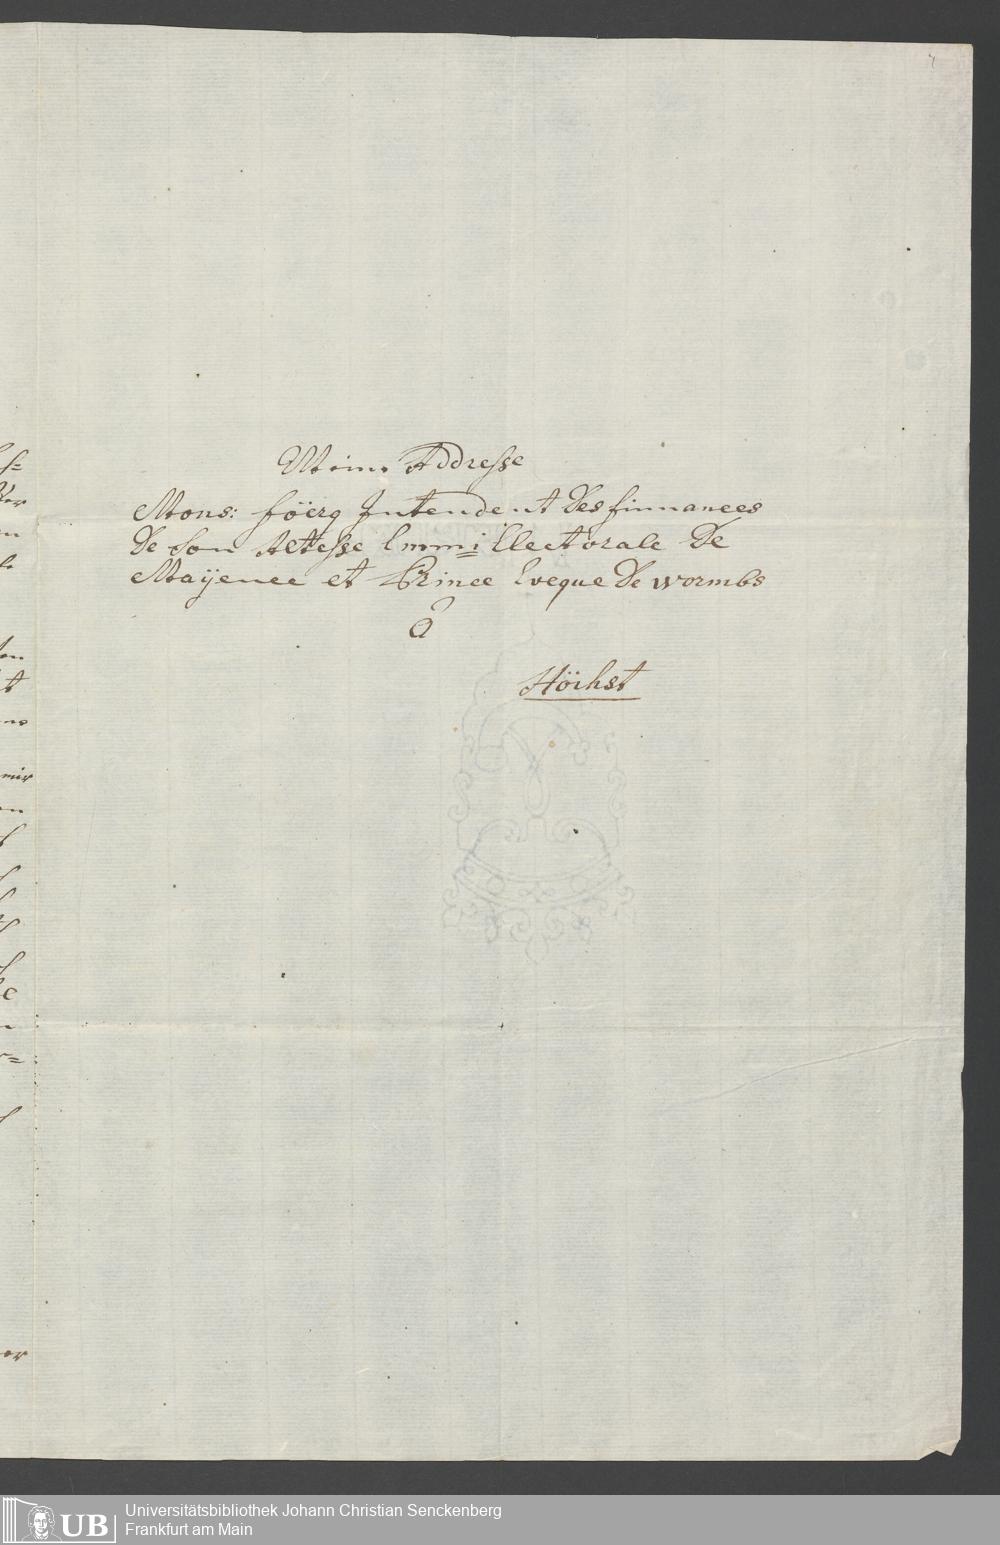 Meine Addresse
Mons: föerg Intendent des finnances
de Son Altesse Emmi Electorale de
Mayence et Prince Eveque de wormbs
à
Höchst
UB
Universitätsbibliothek Johann Christian Senckenberg
Frankfurt am Main